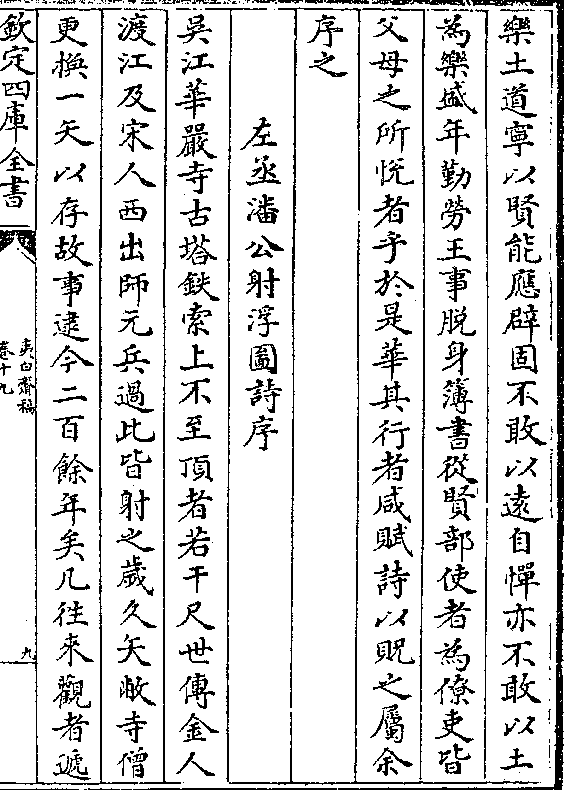 樂土道寧以賢能應辟固不敢以遠自憚亦不敢以土
為樂盛年勤勞王事脱身簿書從賢部使者為僚吏皆
父母之所悦者乎於是華其行者咸賦詩以貺之屬余
序之
左丞潘公射浮圖詩序
吳江華嚴寺古塔鉄索上不至頂者若干尺世傳金人
渡江及宋人西出師元兵過此皆射之歲久矢敝寺僧
更換一矢以存故事逮今二百餘年矣凡往來觀者遞
欽定四庫全書
夷白齋稿
卷十九
九